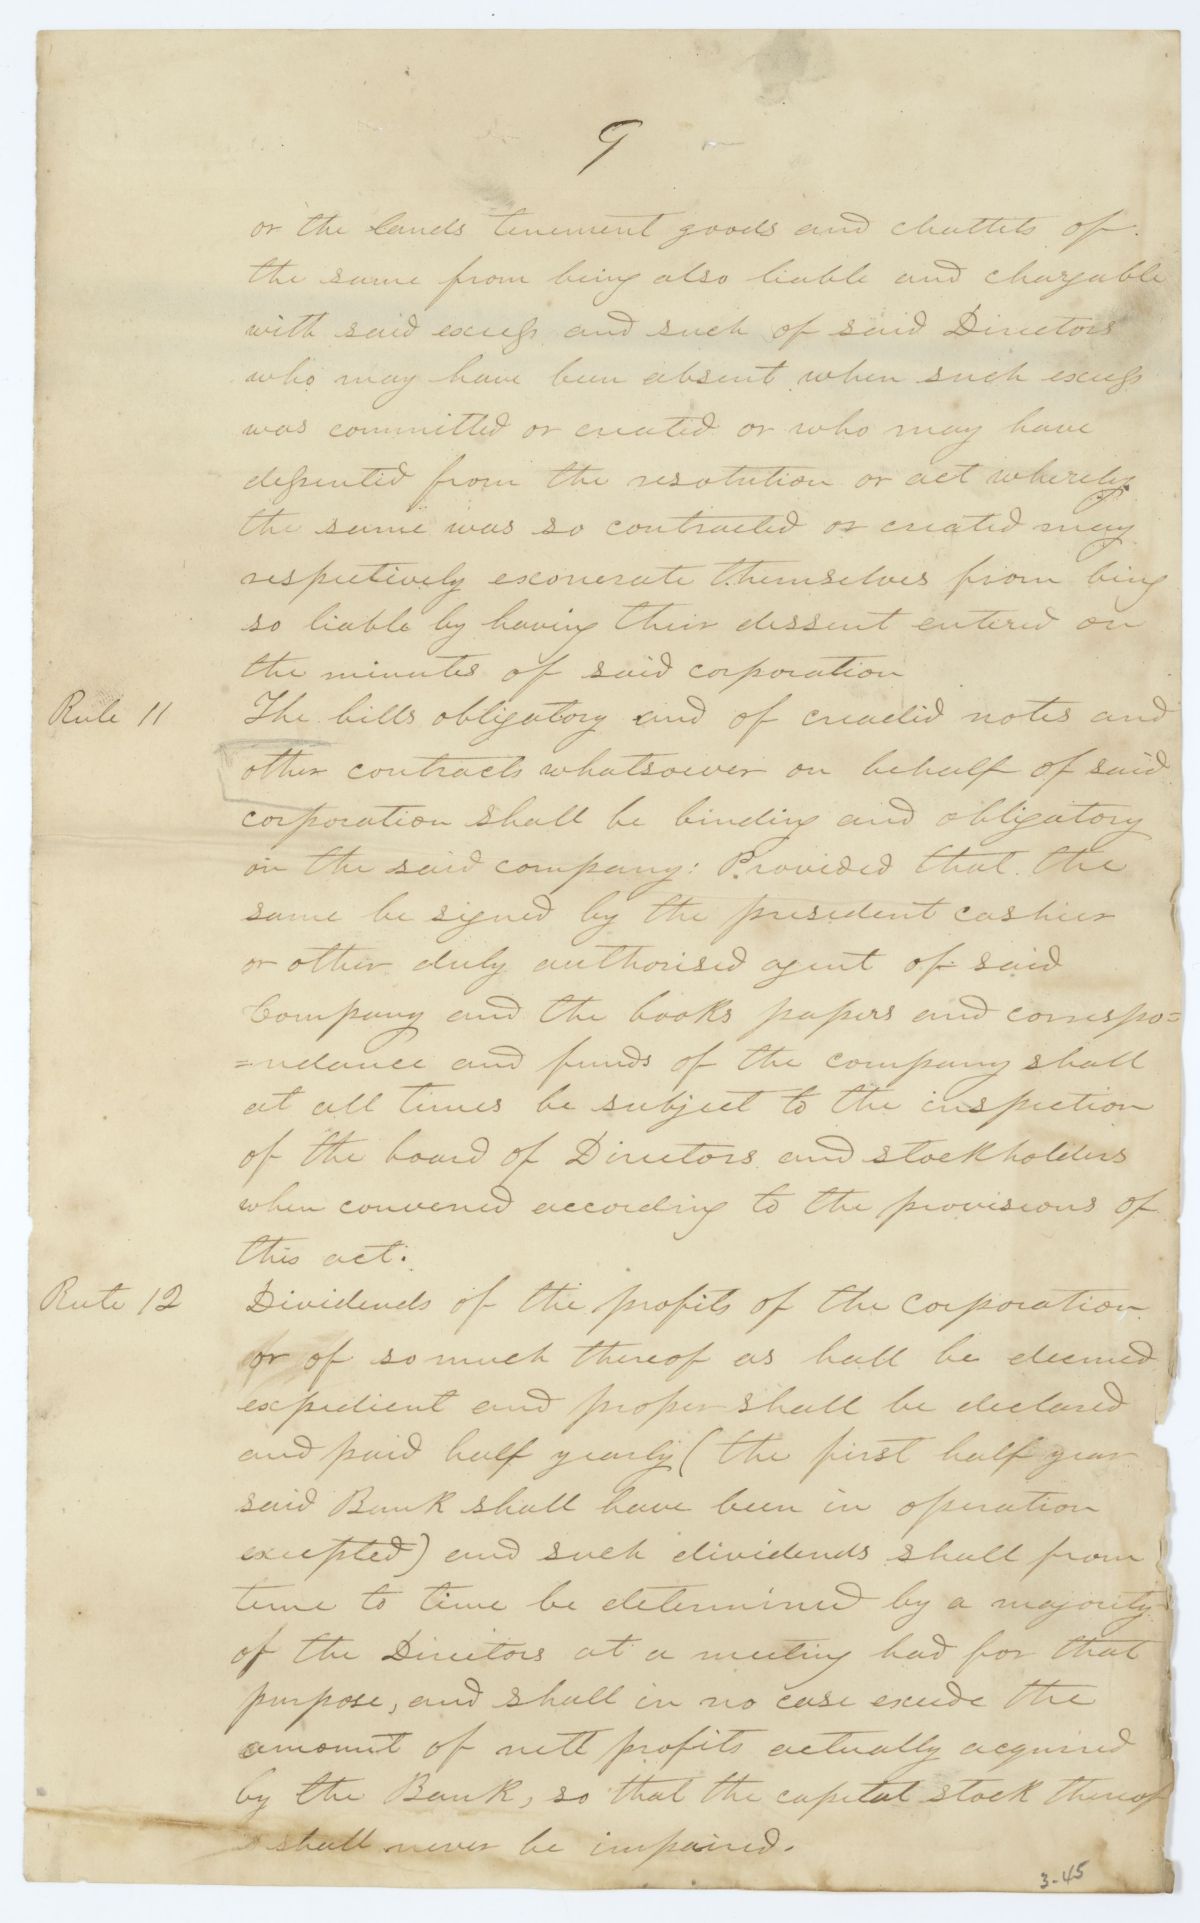 9
or the lands tenement goods and chattels of
the same from being also liable and chargable
with said excess and such of said Directors
who may have been absent when such excess
was committed or created or who may have
dessented from the resolution or act whereby
the same was so contracted or created may
respectively exonerate themselves from being
so liable by having their dessent entered on
the minutes of said corporation
Rule 11 The bills obligatory and of creadid notes and
other contracts whatsoever on behalf of said
corporation shall be binding and obligatory
on the said company: Provided that the
same be signed by the president cashier
or other duly authorised agent of said
Company and the books papers and correspo=
=ndance and funds of the company shall
at all times be subject to the inspection
of the board of Directors and stockholders
when convened according to the provisions of
this act.
Rule 12 Dividends of the profits of the corporation
or of so much thereof as hall be deemed
expedient and proper shall be declared
and paid half yearly (the first half year
said Bank shall have been in operation
excepted) and such dividends shall from
time to time be determined by a majority
of the Directors at a meeting had for that
purpose, and shall in no case exceede the
amount of nett profits actually acquired
by the Bank, so that the capital stock thereof
shall never be impaired.
3-45